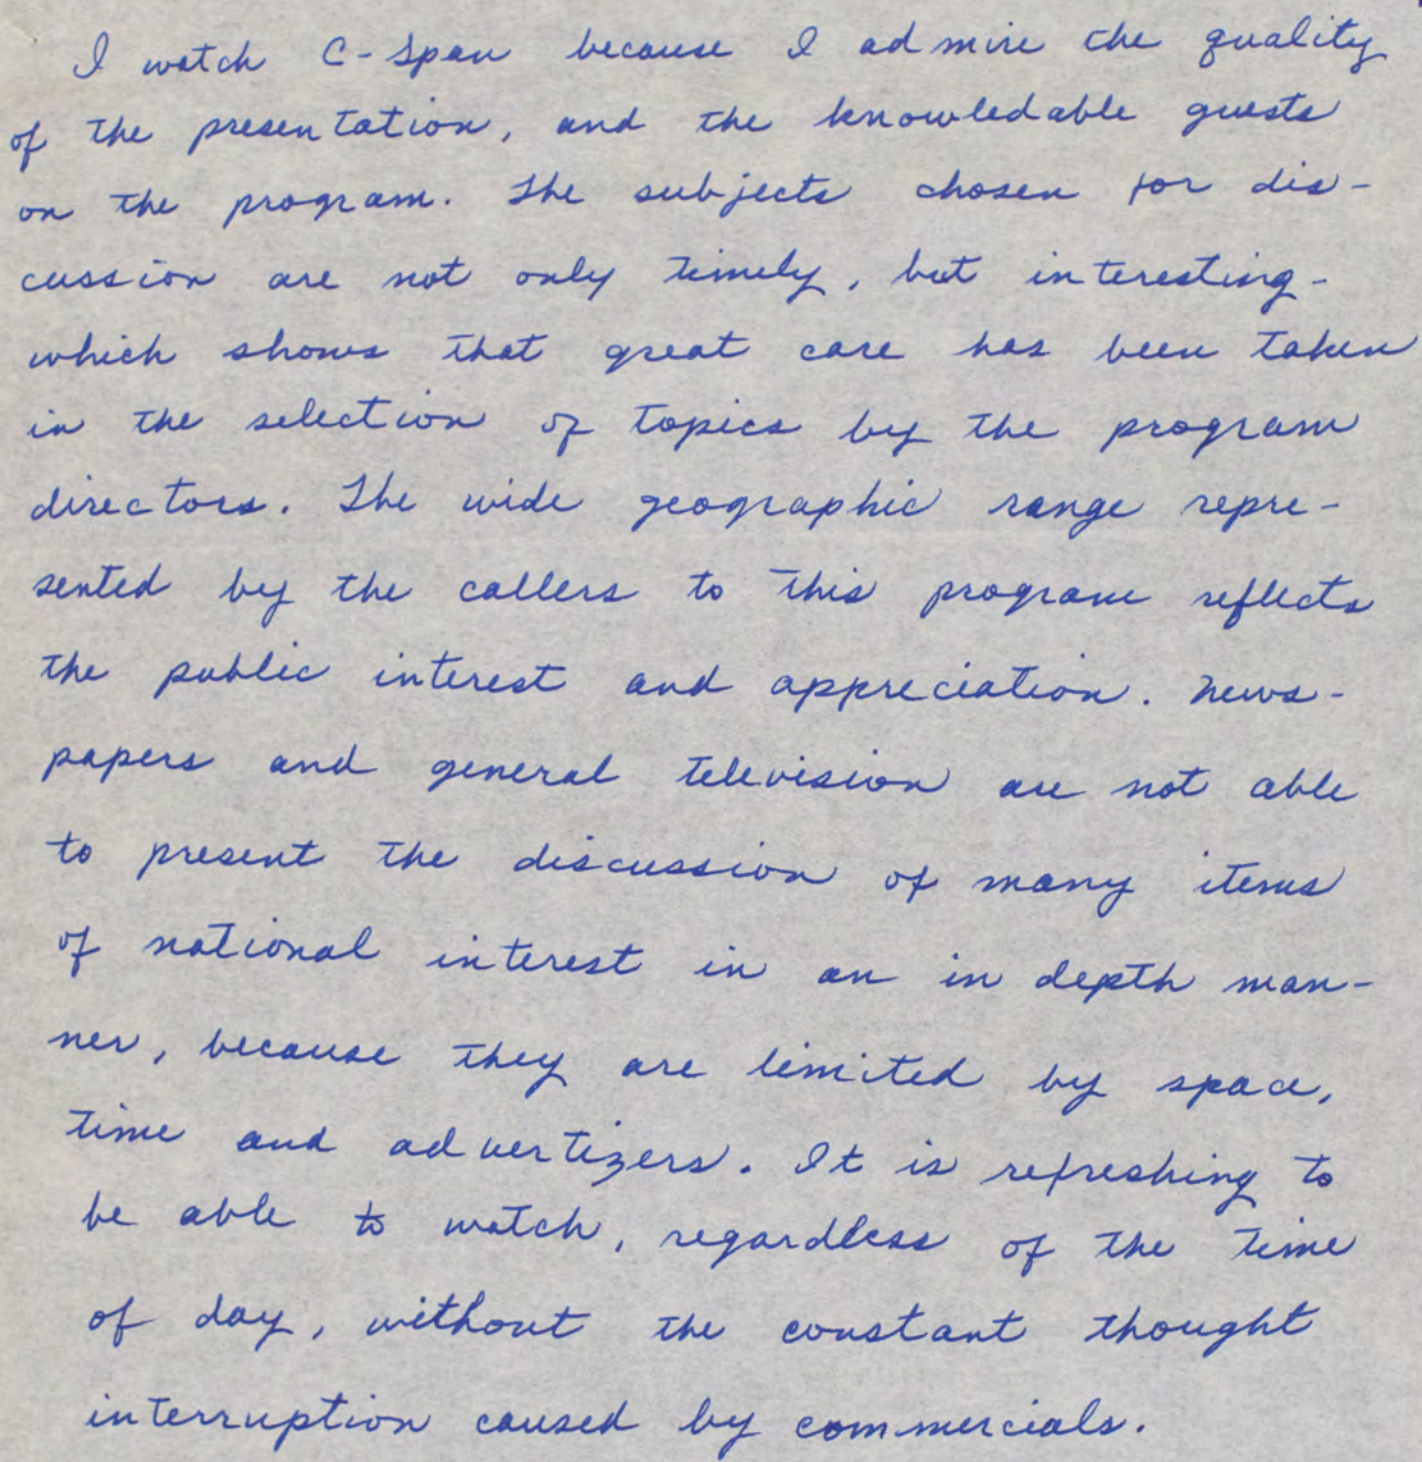 I watch C-Span because I admire the quality
of the presentation, and the knowledable guests
on the program. The subjects chosen for dis-
cussion are not only timely, but interesting-
which shows that great care has been taken
in the selection of topics by the program
directors. The wide geographic range repre-
sented by the callers to this program reflects
the public interest and appreciation. News-
papers and general television are not able
to present the discussion of many items
of national interest in an in depth man-
ner, because they are limited by space,
time and advertizers. It is refreshing to
be able to watch, regardless of the time
of day, without the constant thought
interruption caused by commercials.